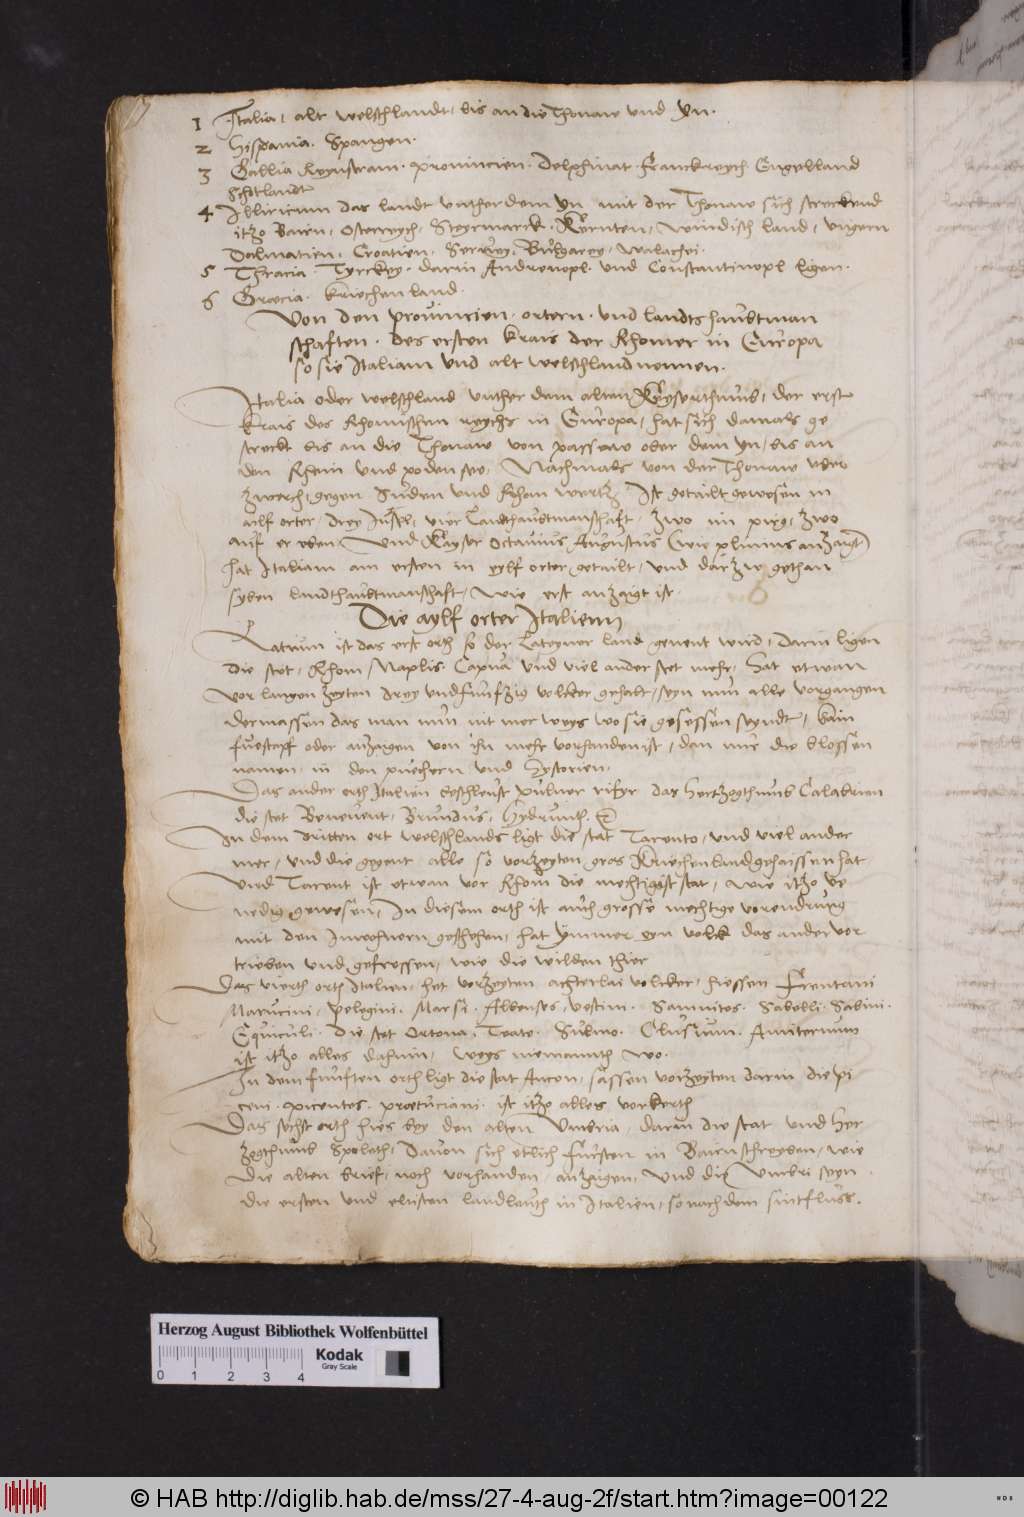 1 Italia, alt welschlandt, bis an die Thonaw und yn.
2 Hispania. Spangen.
3 Gallia Reynstram. provincien. Delphinat. Franckreych. Engelland
Schotlandt
4 Illiricum das landt unther dem yn mit der Thonaw sich streckend
itzo Bairn, Osterreych, Steyrmarck. Kernten, windisch land, ungern
Dalmatien, Croatien. Servey, Bulgarey, walachei.
5 Thracia Tyrckey. darin Andronopl. und Constantinopl ligen.
6 Graecia. kriechen land.
Von den provincien. ortern. und landtshaubtman
schafften. des ersten krais der Rhomer in Europa
so sie Italiam und alt welschland nennen.
Italia oder welschland unther dem alten Kayserthumb, der erst
krais des Rhomischen reychs in Europa, hat sich damals ge
streckt bis an die Thonaw von passaw oder dem yn, bis an
den Rhein und poden see, Nachmals von der Thonaw uber
zwerch, gegen Suden und Rhom wertz Ist getailt gewesen in
ailf orter, drey Insel, vier Landthaubtmanschaft, zwo im pirg, zwo
auf er eben, Und Kayser Octavius Augustus (wie plinius anzaigt)
hat Italiam am ersten in eylf orter getailt, und darzw gethan
syben landthaubtmanschaft, wie erst anzaigt ist.
Die aylf orter Italienn
Latium ist das erst orth so der Lateyner land genent wird, darin ligen
die stet, Rhom, Naplis. Capua und viel ander stet mehr, hat etwan
vor langen zeyten drey und funfzig volcker gehabt, seyn nun alle vergangen
dermassen das man nun nit mer weys wo sie gesessen seyndt, kain
fuestapf oder anzaigen von ihn mehr vorhanden ist, dan nur die blossen
namen in den puechern und Hystorien.
Das ander orth Italien beschleust das Hertzogthumb Calabrien
die stet Benevent, Brundus, Hydrunth.
In dem dritten ort welschlands ligt die stat Tarento, und viel ander
mer, und die gegent alle so vorzeyten gros Kriechenland gehaissen hat
Und Tarent ist etwan vor Rhom die mechtigist stat, wie itzo ve
nedig gewesen, In diesem orth ist auch grosse mechtige verendrung
mit den Inwohnern geschehen, hat ymmer eyn volck das ander ver
trieben und gefressen, wie die wilden thier
Das vierth orth Italien, het vorzeyten achterlai volcker, hiessen Frentani
Marucini, Peligini. Marsi. Albenses, Vestini. Samnites. Sabelli. Sabini.
Equiculi. die stet Ortona, Teate. Sulmo. Clusium. Amiternum
ist itzo alles dahin, weys niemanth wo.
In dem funften orth ligt die stat Ancon, sassen vorzeyten darin die pi
ceni. picentes. praetuciani. ist itzo alles verkerth
Das sechst orth hies bey den alten Umbria, darin die stat und Her
zogthumb Spoleth, Davon sich etlich fursten in Bairn schreyben, wie
die alten brief, noch vorhanden, anzaigen, Und die Umbri seyn
die ersten und eltisten landleuth in Italien, so nach dem sintfluss.
Herzog August Bibliothek Wolfenbüttel
Kodak
Gray Scale
0 1 2 3 4
© HAB http://diglib.hab.de/mss/27-4-aug-2f/start.htm?image=00122